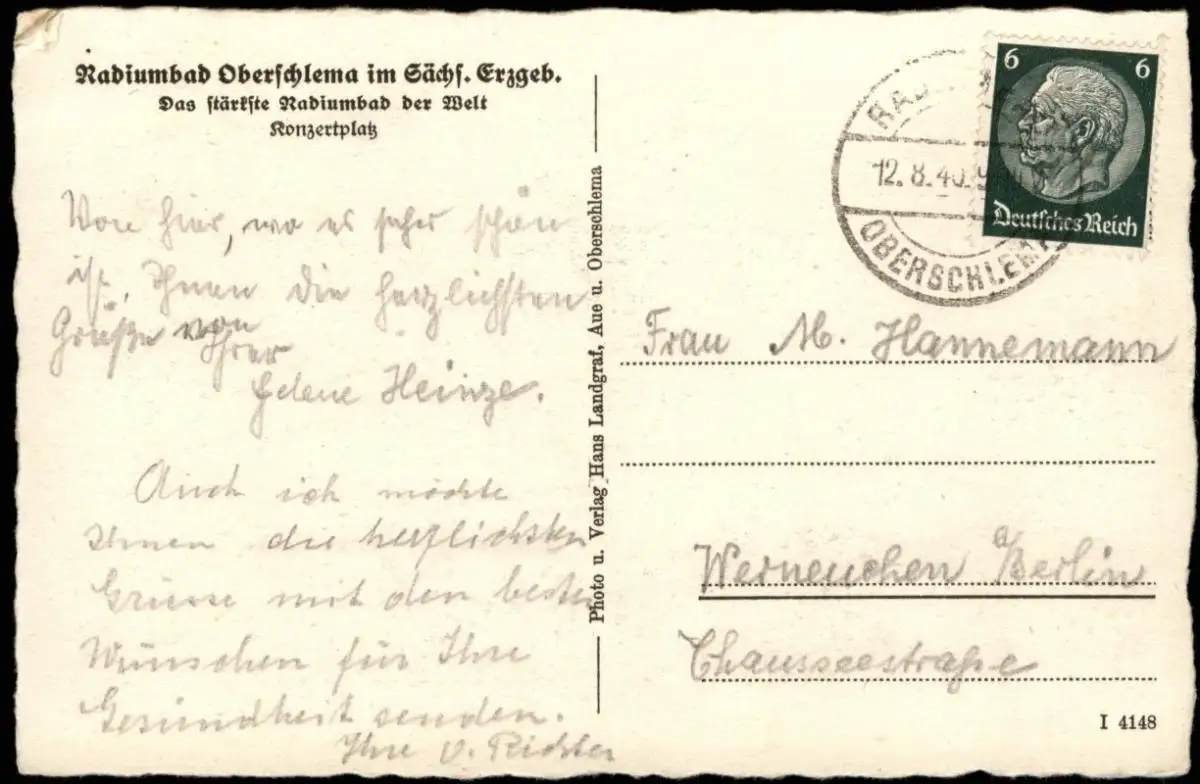 Radiumbad Oberschlema im Sächs. Erzgeb.
Das stärkste Radiumbad der Welt
Konzertplatz
Von hier, wo es sehr schön
ist, Ihnen die herzlichsten
Grüße von
Ihrer
Helene Heinze.
Auch ich möchte
Ihnen die herzlichsten
Grüsse mit den besten
Wünschen für Ihre
Gesundheit senden.
Ihre v. Richter
Photo u. Verlag Hans Landgraf, Aue u. Oberschlema
12.8.40.
OBERSCHLEMA
6 6
Deutsches Reich
Frau M. Hannemann
Werneuchen a/Berlin
Chausseestraße
I 4148